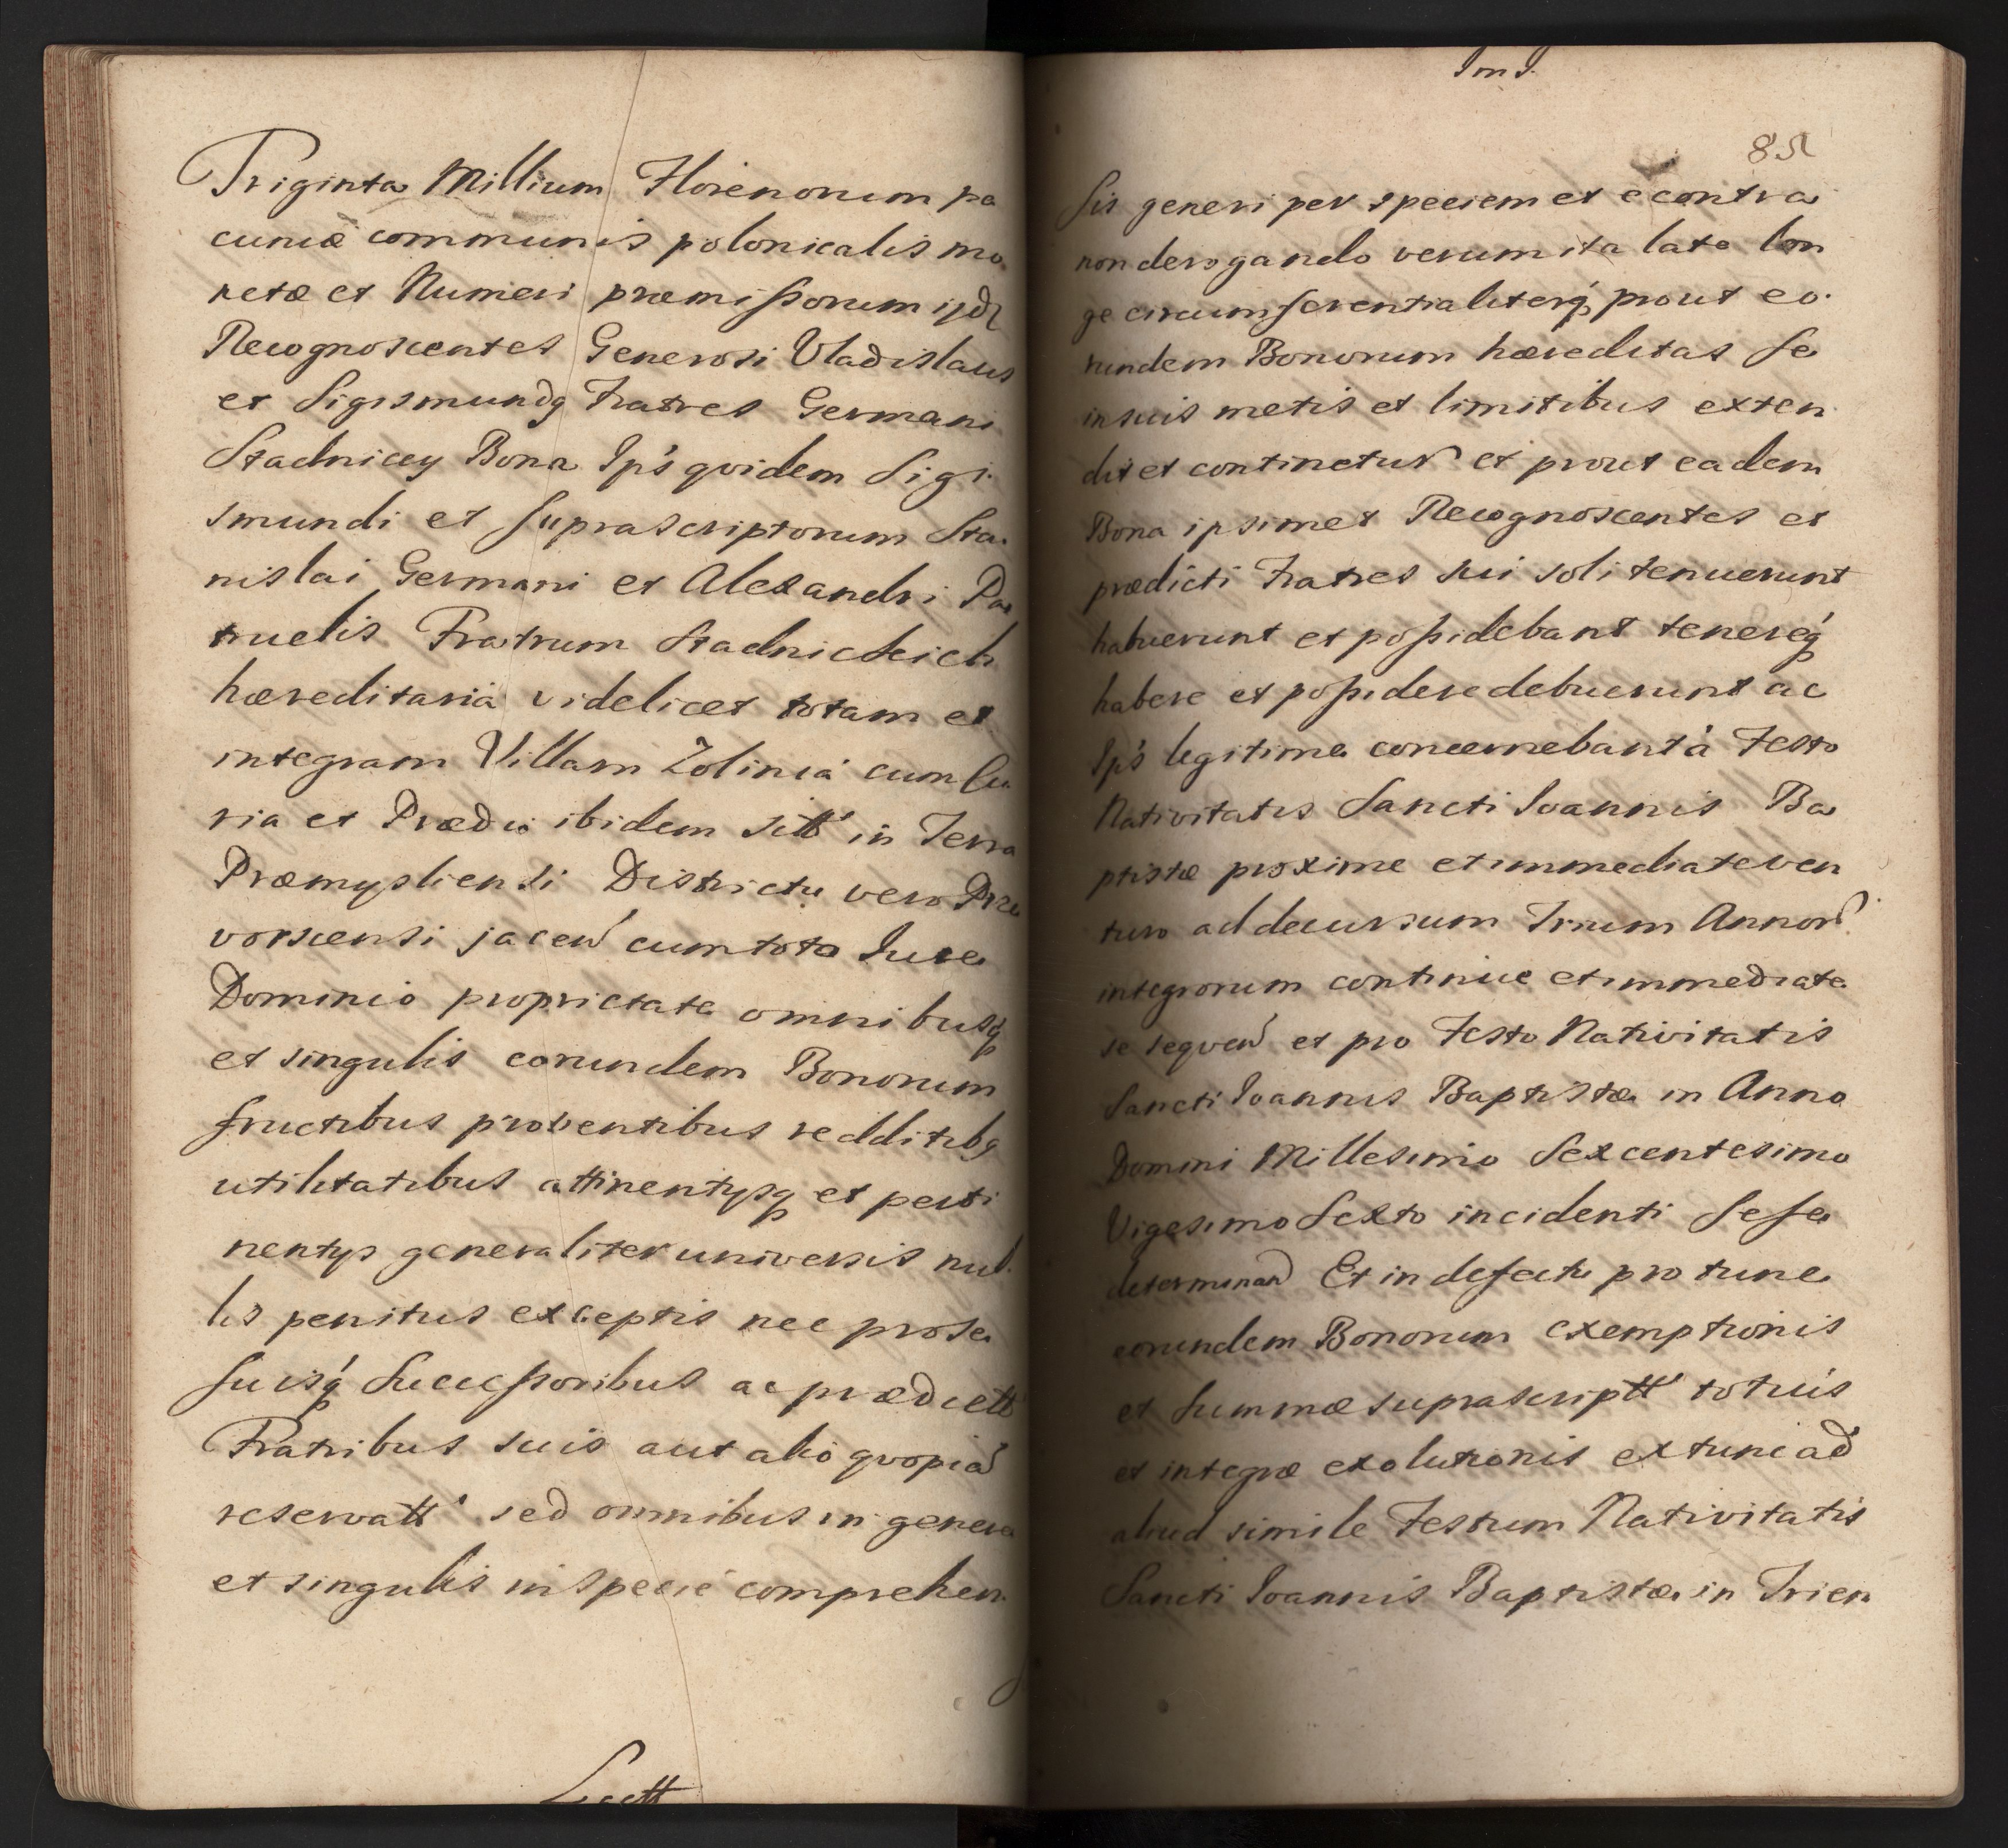 Triginta Millium Florenorum pa
cuniæ communis polonicalis mo
netæ et Numeri præmissorum ijdz
Recognoscentes Generosi Vladislaus
et Sigismundq Fratres Germani
Stadniccy Bona Ips quidem Sigi
smundi et suprascriptorum Sta
nislai Germani et Alexandri Pa
truelis Fratrum Stadnickich
hæreditaria videlicet totam et
integram Villam Zolinia cum Cu
ria et Prædio ibidem sitt in Terra
Præmysliensi Districtu vero Prze
vorscensi jacen cum toto Jure
Dominio proprietate omnibusq
et singulis eorundem Bonorum
fructibus proventibus redditibq
utilitatibus attinentysq et perti
nentys generaliter universis nul
lis penitus exceptis nec pro se
suisq Successoribus ac prædictt
Fratribus suis aut alio quopia
reservatt sed omnibus in genere
et singulis in specie comprehen
Lectt
Im I.
85
sis generi per speciem et e contra
non derogando verum ita late lon
ge circumferentialiterq prout eo
rundem Bonorum hæreditas se
in suis metis et limitibus exten
dit et continetur et prout eadem
Bona ipsimet Recognoscentes et
prædicti Fratres sui soli tenuerunt
habuerunt et possidebant tenereq
habere et possidere debuerunt ac
Ips legitime concernebant à Festo
Nativitatis Sancti Joannis Ba
ptistæ proxime et immediate ven
turo ad decursum Trium Annor
integrorum continue et immediate
se sequen et pro Festo Nativitatis
Sancti Joannis Baptistæ in Anno
Domini Millesimo Sexcentesimo
Vigesimo Sexto incidenti sese
determinan Et in defectu pro tunc
eorundem Bonorum exemptionis
et summæ suprascriptt totius
et integræ exolutionis ex tunc ad
aliud simile Festum Nativitatis
Sancti Joannis Baptistæ in Trien